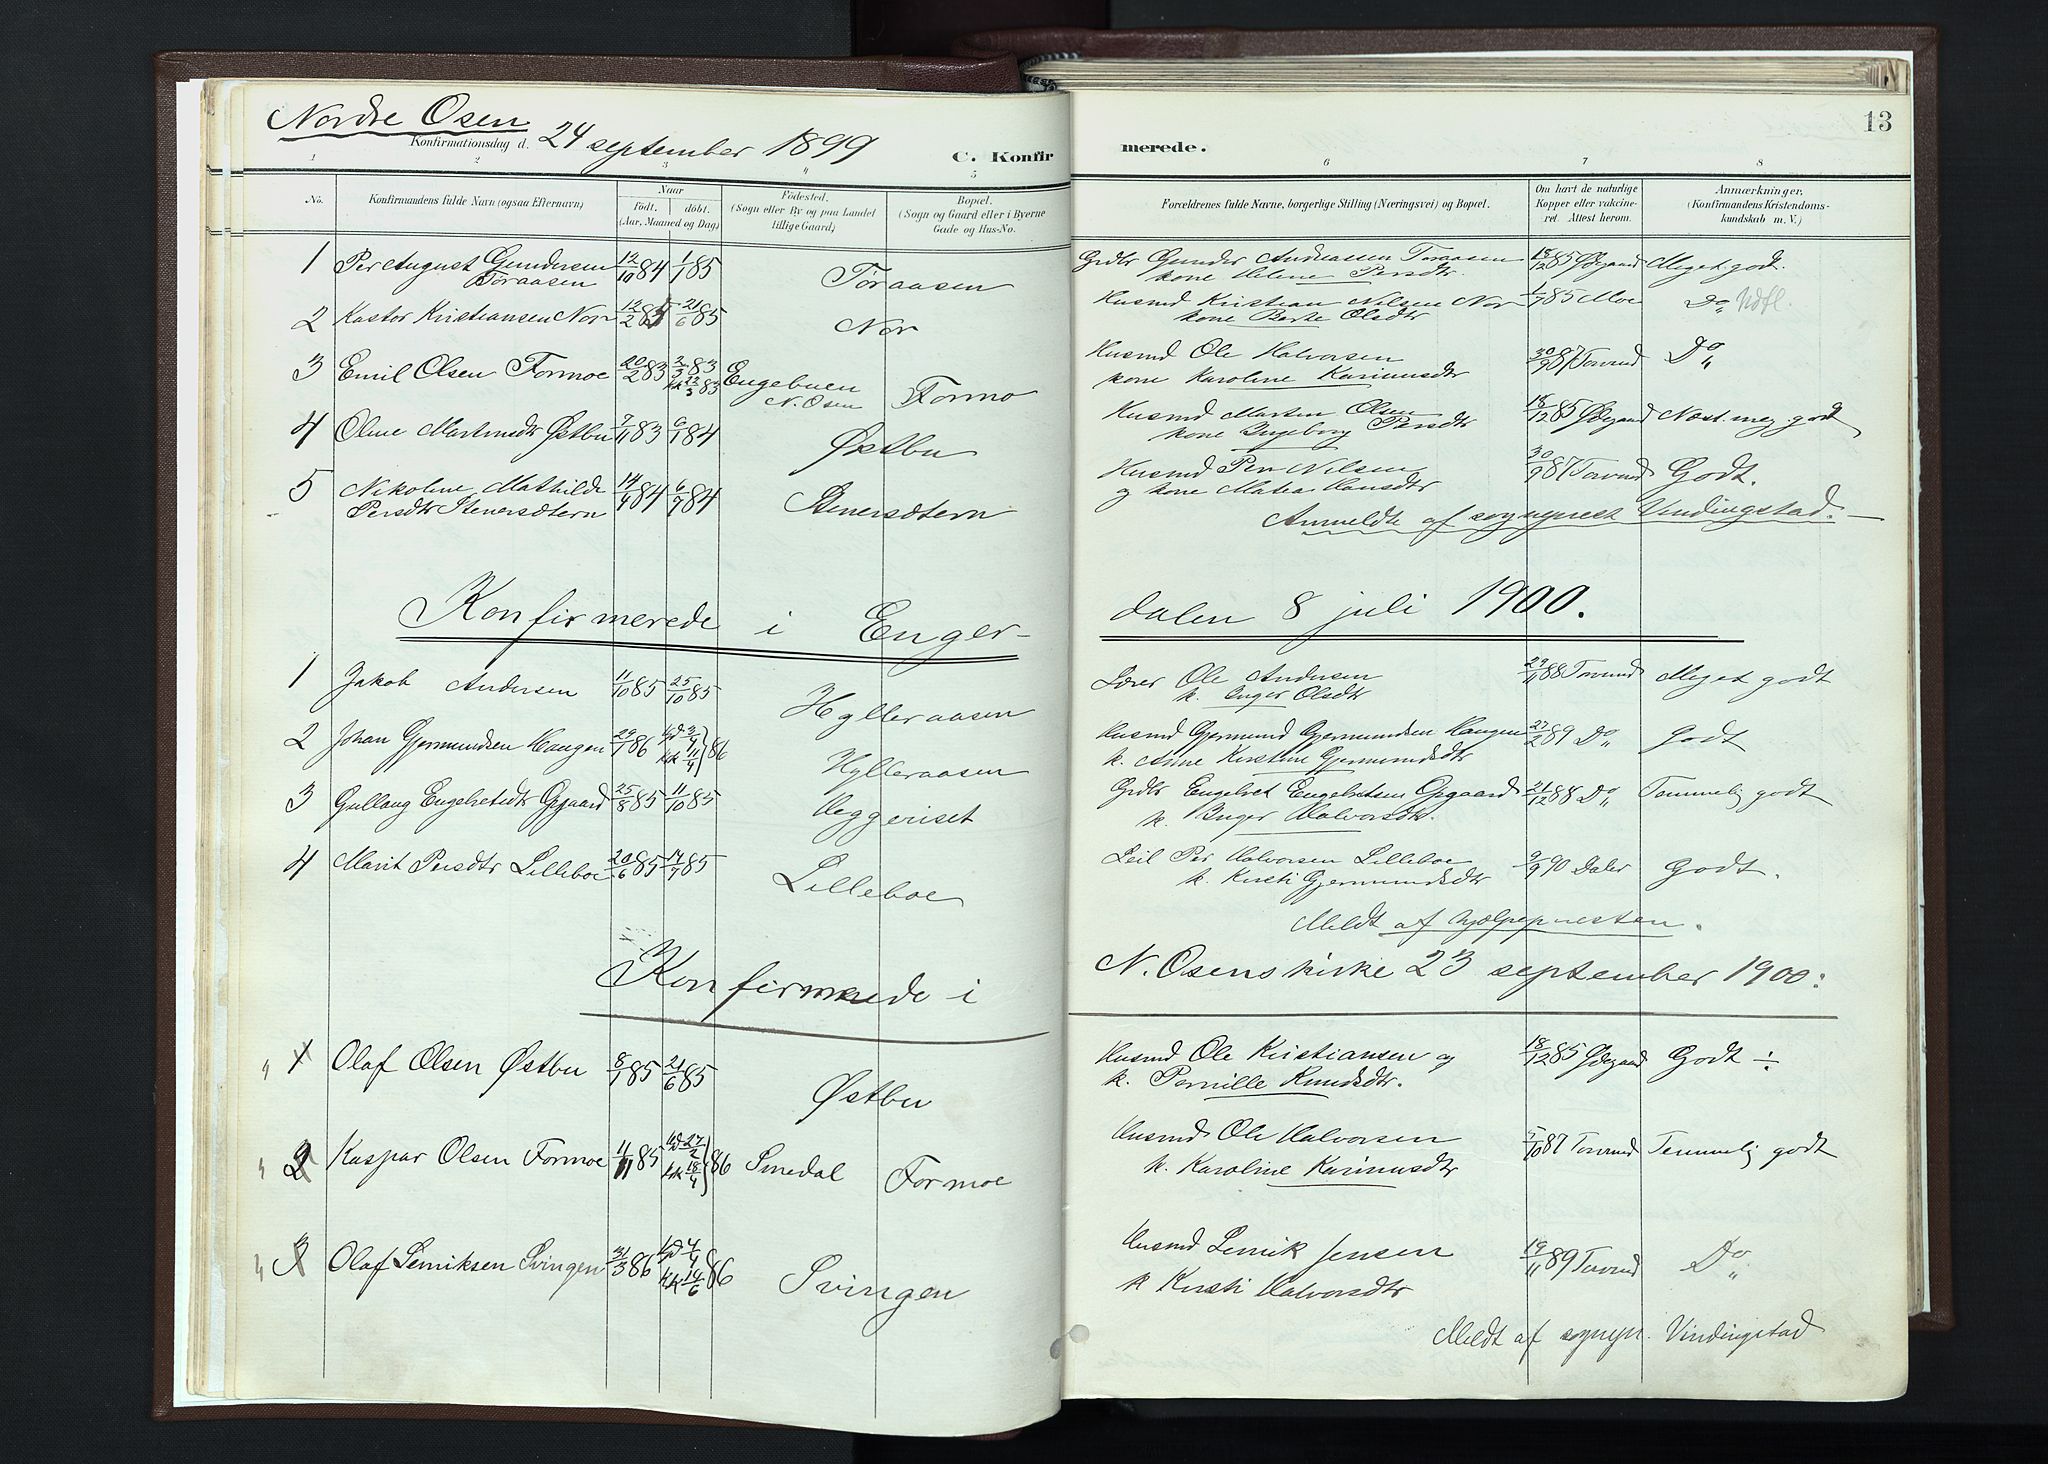 Nordre Osen
Konfirmationsdag d. 24 september 1899
C. Konfirmerede.
13
1 2 3 4 5 6 7 8
No.
Konfirmandens fulde Navn (ogsaa Efternavn)
Naar
Født. døbt.
(Aar, Maaned og Dag)
Fødested.
(Sogn eller By og paa Landet
tillige Gaard)
Bopæl.
(Sogn og Gaard eller i Byerne
Gade og Hus-No.
Forældrenes fulde Navne, borgerlige Stilling (Næringsvei) og Bopæl.
Om havt de naturlige
Kopper eller vakcineret.
Attest herom.
Anmærkninger,
(Konfirmandens Kristendomskundskab
m. V.)
1 Per August Gundersen 12/10 84 1/1 85 Grdbr Gunder Andreassen Toraasen 18/12 85 Ødegaard Meget godt.
Toraasen Tøraasen kone Helene Persdtr.
2 Kastor Kristiansen Nor 12/2 85 21/6 85 Nor Husmd Kristian Nilsen Nor 1/7 85 Moe Do Udfl.
kone Berte Olsdtr
3 Emil Olsen Formoe 20/2 83 2/3 83 Engebuen Formo Husmd Ole Halvorsen 30/9 87 Torvund Do
kk 22/3 83 N. Osen kone Karoline Karinusdtr
4 Oline Martinusdtr Østbu 7/11 83 6/1 84 Østbu Husmd Morten Olsen 18/12 85 Ødegaard Næst. meg. godt
kone Ingeborg Persdtr
5 Nikoline Mathilde 14/4 84 6/7 84 Husmd Per Nilsen 30/9 87 Torvund Godt.
Persdtr Stenersætern Stenersætern og kone Matea Hansdtr
Anmeldte af sogneprest Vindingstad.
Konfirmerede i Engerdalen 8 juli 1900.
1 Jakob Andersen 11/10 85 25/10 85 Hylleraasen Lærer Ole Andersen 29/11 88 Torvund Meget godt
k. Inger Olsdtr
2 Johan Gjermundsen Haugen 29/1 86 hd 3/4 kk 11/4 86 Hylleraasen Husmd Gjermund Gjermundsen Haugen 27/2 89 Do Godt
k. Anne Kirstine Gjermundsdtr
3 Gullaug Engebretsdtr Opgaard 25/8 85 11/10 85 Heggeriset Grdbr Engebret Engebretsen Opgaard 21/12 88 Do Temmelig godt
k. Inger Halvorsdtr.
4 Marit Persdtr Lilleboe 20/6 85 14/7 85 Lilleboe Leil Per Halvorsen Lilleboe 9/9 90 Daler Godt.
k. Kirsti Gjermundsdtr
Meldt af hjælpepresten.
Konfirmerede i N. Osens kirke 23 september 1900:
1 Olaf Olsen Østbu 8/1 85 21/6 85 Østbu Husmd Ole Kristiansen og 18/12 85 Ødegaard Godt ÷
k. Pernille Knudsdtr.
2 Kaspar Olsen Formoe 11/11 85 hd 27/2 kk 18/4 86 Smedal Formoe Husmd Ole Halvorsen 5/10 87 Torvund Temmelig godt
k. Karoline Karinusdtr
3 Olaf Semiksen Svingen 31/3 86 hd 4/4 kk 14/6 86 Svingen Husmd Semik Jensen 19/11 89 Torvund Do
k Kirsti Halvorsdtr
Meldt af sognepr. Vindingstad